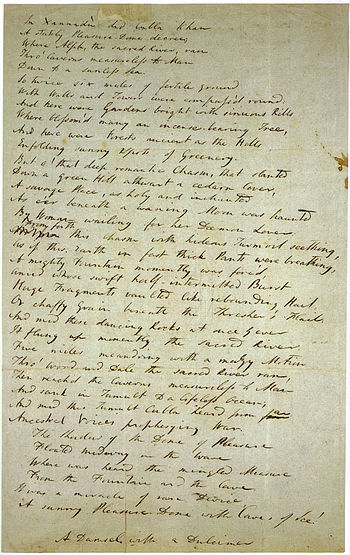 In Xannadù did Cubla Khan
A stately Pleasure Dome decree,
Where Alph, the sacred River, ran
Thro' Caverns measureless to Man
Down to a sunless Sea.
So twice six miles of fertile ground
With Walls and Towers were compass'd round:
And here were Gardens bright with sinuous Rills
Where blossom'd many an incense-bearing Tree,
And here were Forests ancient as the Hills
Enfolding sunny Spots of Greenery.
But o! that deep romantic Chasm, that slanted
Down a green Hill athwart a cedarn Cover,
A savage Place, as holy and inchanted
As e'er beneath a waning Moon was haunted
By Woman wailing for her Daemon Lover:
From forth this Chasm with hideous Turmoil seething,
As if this Earth in fast thick Pants were breathing,
A mighty Fountain momently was forc'd,
Amid whose swift half-intermitted Burst
Huge Fragments vaulted like rebounding Hail,
Or chaffy Grain beneath the Thresher's Flail:
And mid these dancing Rocks at once & ever
It flung up momently the sacred River.
Five miles meandring with a mazy Motion
Thro' Wood and Dale the sacred River ran,
Then reach'd the Caverns measureless to Man
And sank in Tumult to a lifeless Ocean;
And mid this Tumult Cubla heard from far
Ancestral Voices prophesying War.
The Shadow of the Dome of Pleasure
Floated midway on the Wave
Where was heard the mingled Measure
From the Fountain and the Cave.
It was a miracle of rare Device,
A sunny Pleasure-Dome with Caves of Ice!
A Damsel with a Dulcimer